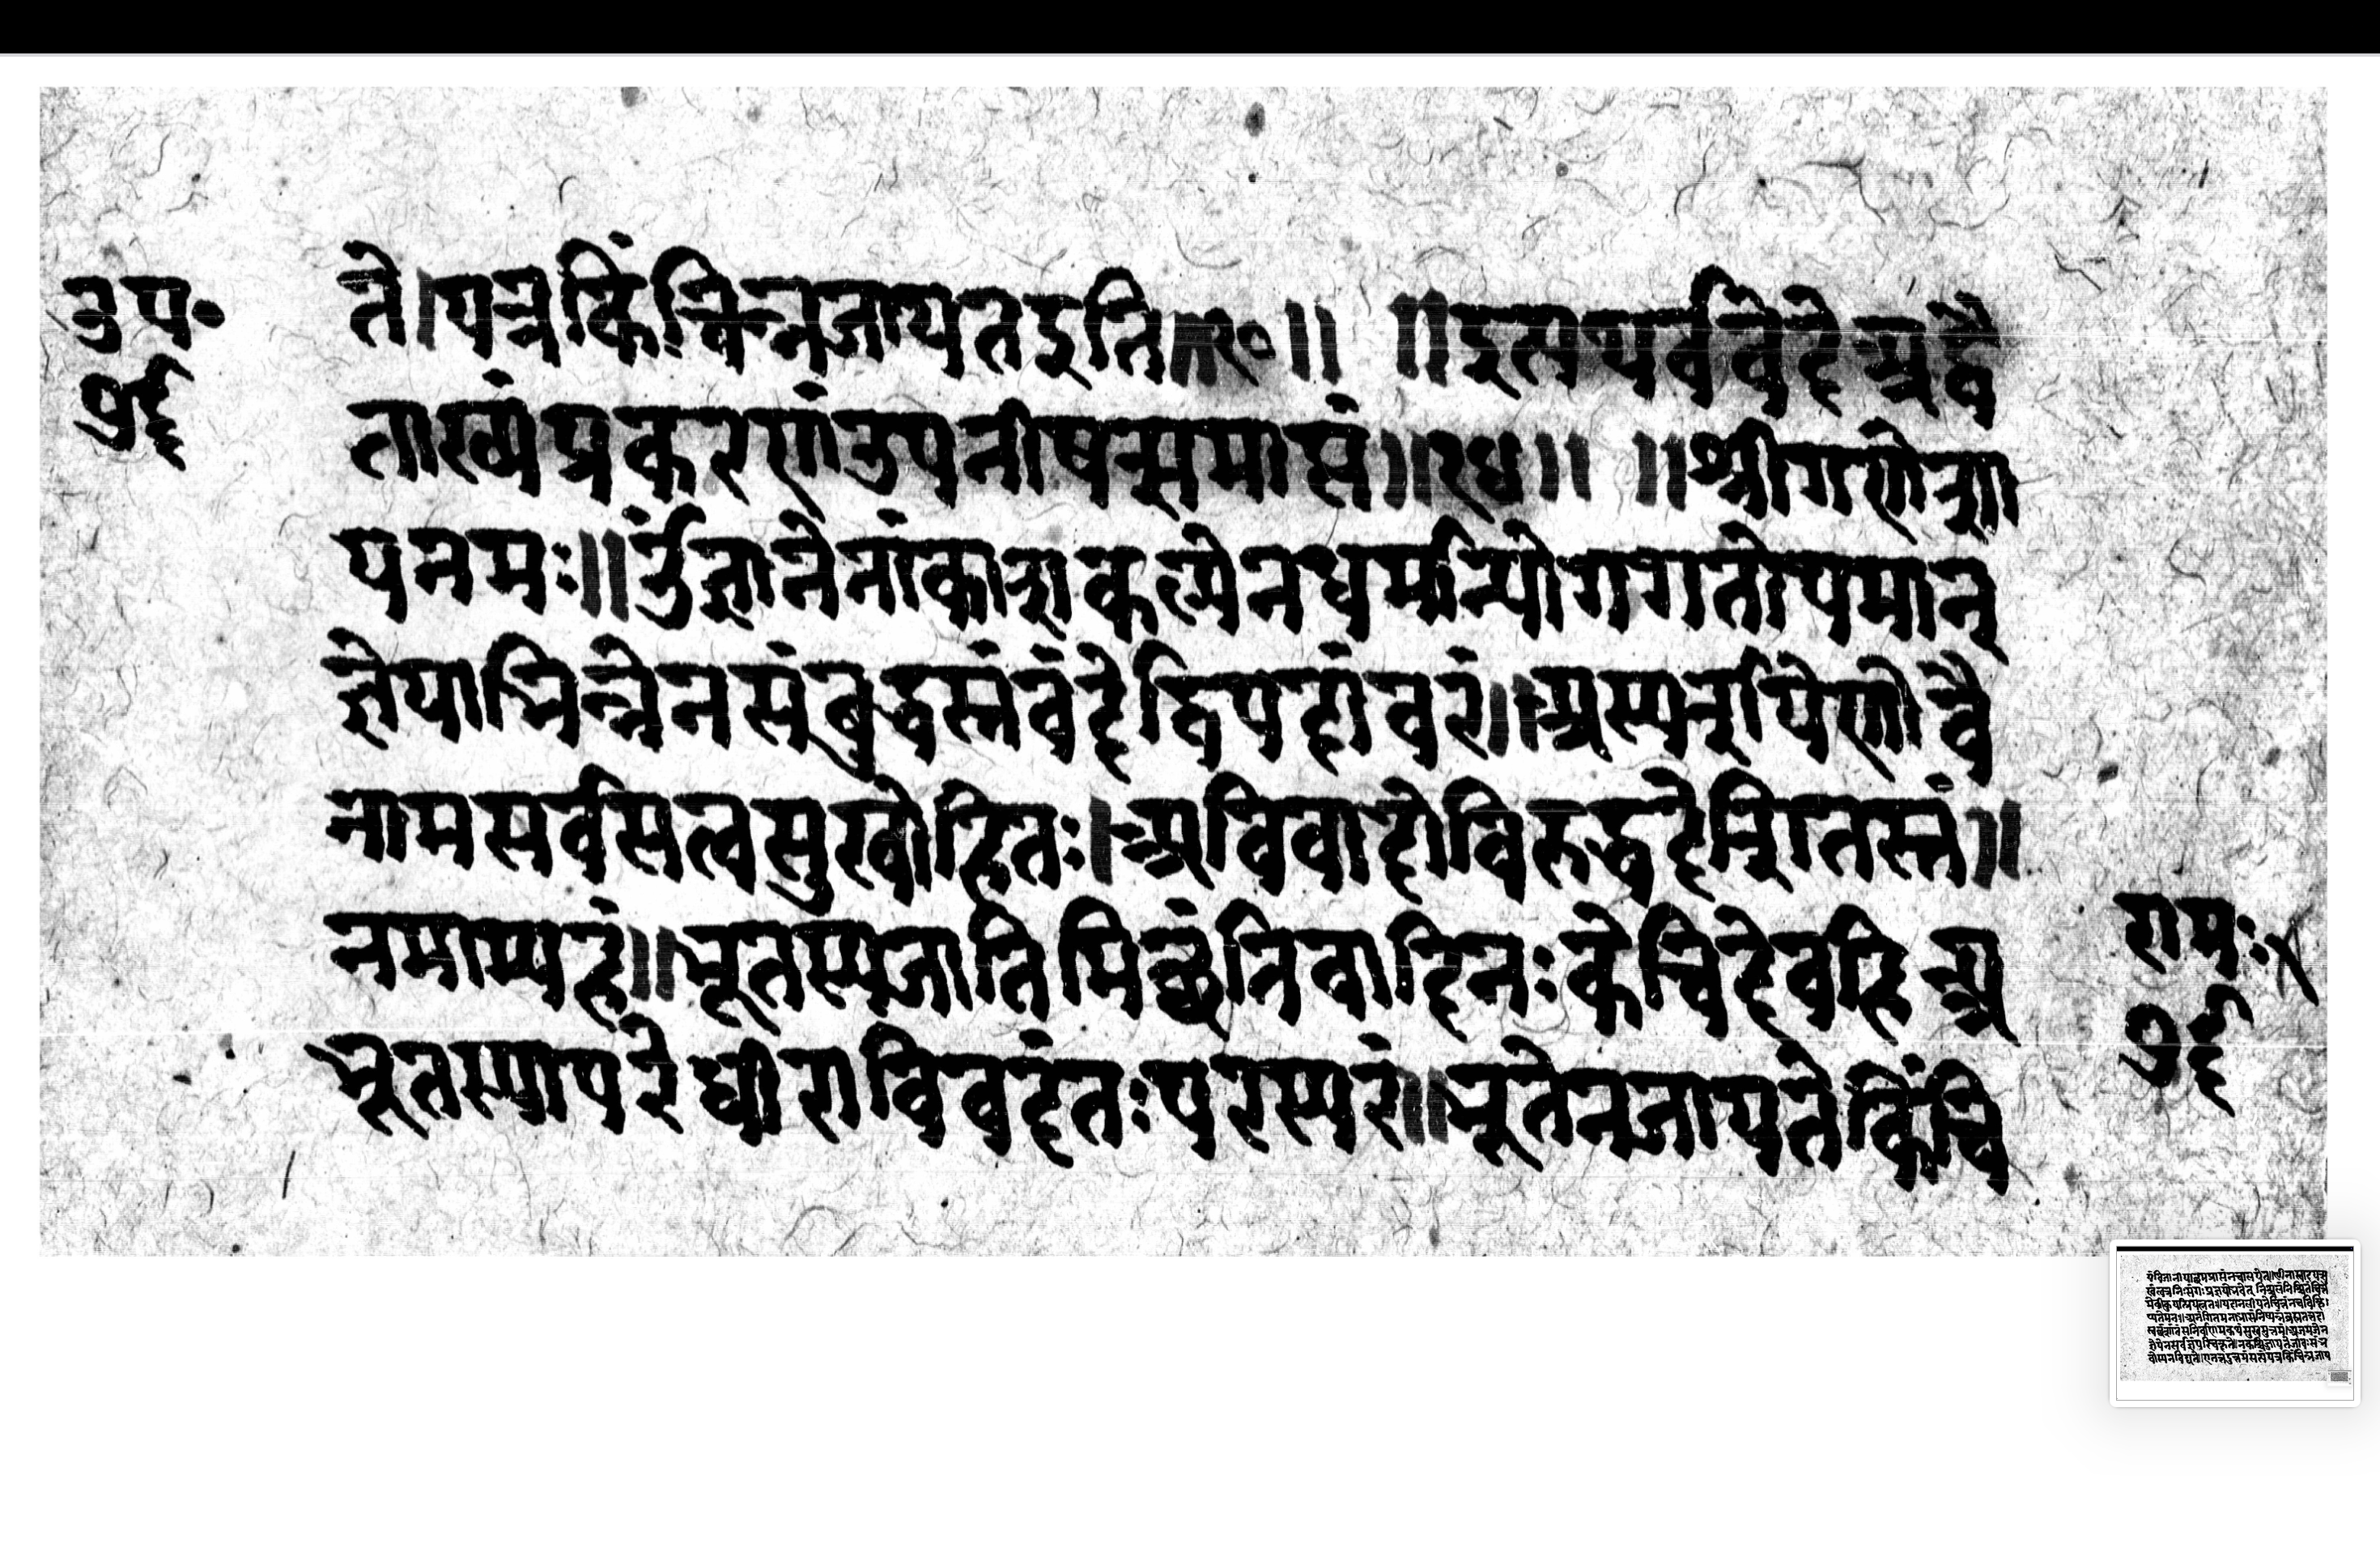 उप॰
७६
ते।यत्रकिंचिन्नजायतइति॥१०॥ ॥इत्यथर्ववेदेअद्वै
ताख्यंप्रकरणंउपनीषत्समाप्तं॥२४॥ ॥श्रीगणेशा
यनमः॥ॐज्ञानेनांकाशकल्पेनधर्मान्योगगतोपमान्
ज्ञेयाभिन्नेनसंबुद्धस्तंवंदेद्विपदांवरं॥अस्पर्शयेगोवै
नामसर्वसत्वसुखोहितः।अविवादोविरुद्धदेशितस्तं॥
नमाम्यहं॥भूतस्यजातिमिच्छंतिवादिनःकेचिदेवहिअ
भूतस्यापरेधीराविवदंतःपरस्परं॥भूतेनजायतेकिंचि
रामः
७६